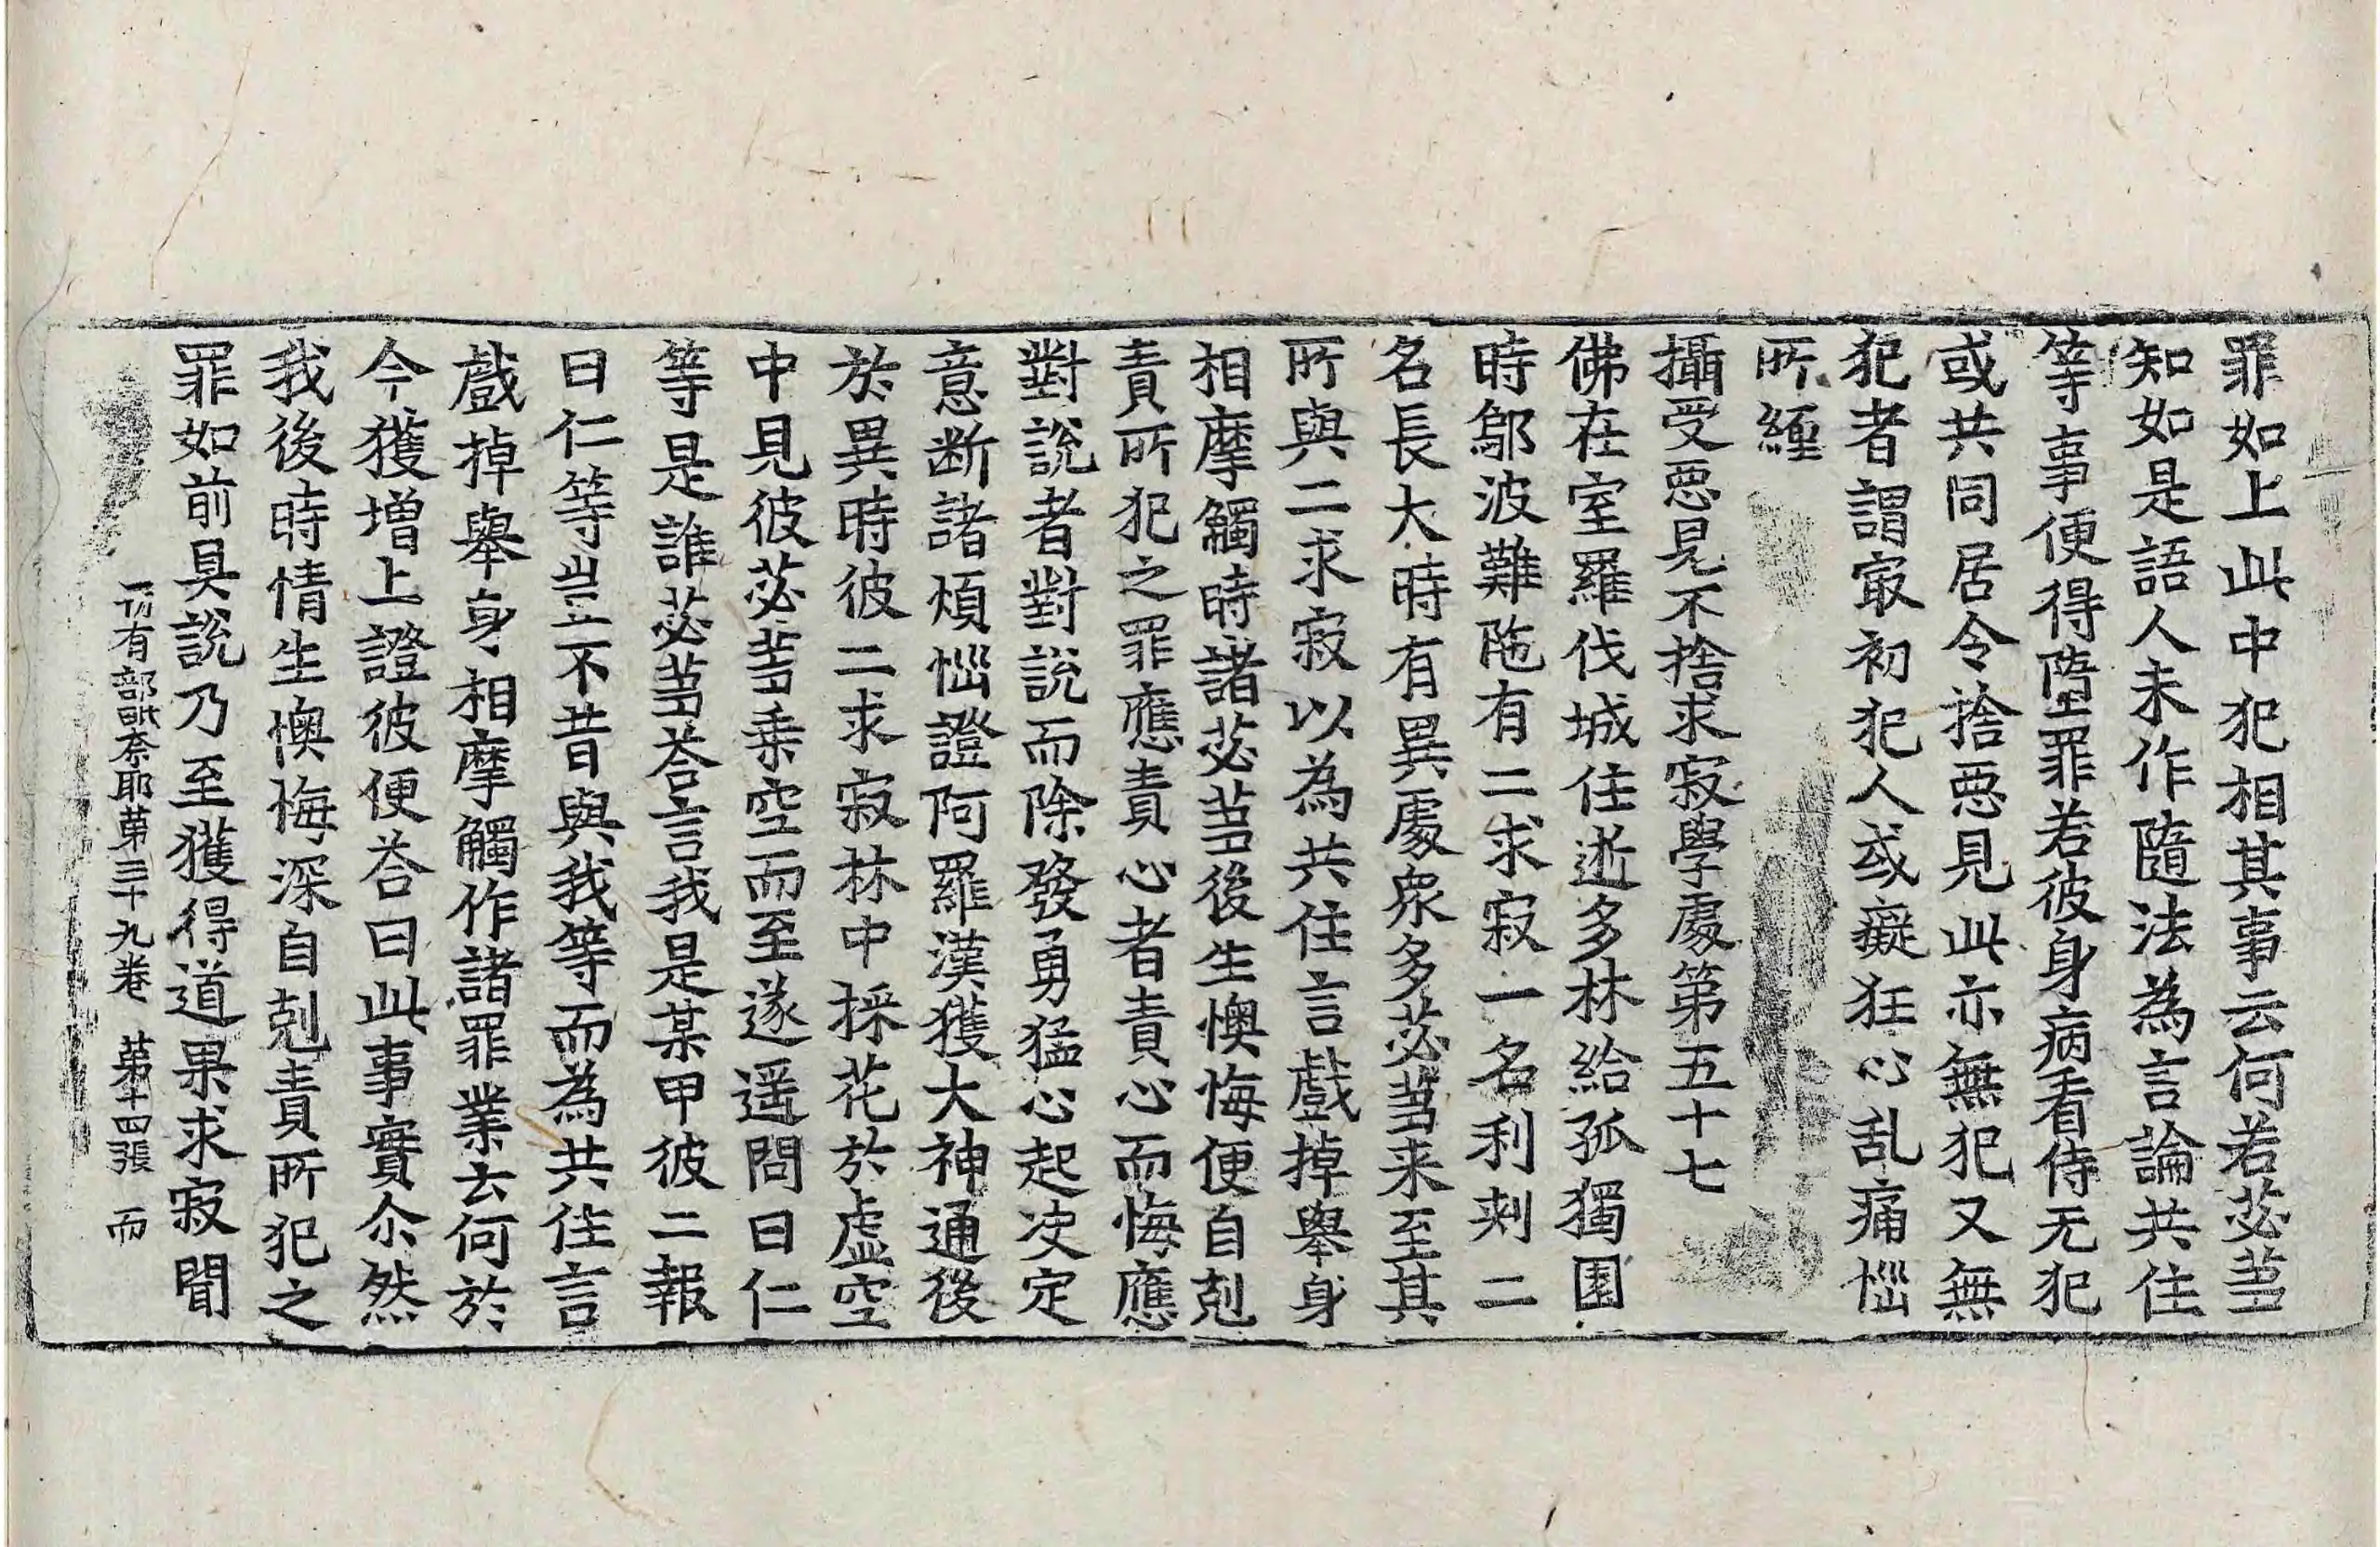 罪如上此中犯相其事云何若苾芻
知如是語人未作隨法為言論共住
等事便得墮罪若彼身病看侍无犯
或共同居令捨惡見此亦無犯又無
犯者謂冣初犯人或癡狂心乱痛惱
所纏
攝受惡見不捨求寂學處第五十七
佛在室羅伐城住逝多林給孤獨園
時鄔波難陁有二求寂一名利刺二
名長大時有異處衆多苾芻来至其
所與二求寂以為共住言戲掉舉身
相摩觸時諸苾芻後生懊悔便自剋
責所犯之罪應責心者責心而悔應
對說者對說而除發勇猛心起决定
意断諸煩惱證阿羅漢獲大神通後
於異時彼二求寂林中採花於虛空
中見彼苾芻乗空而至遂遥問曰仁
等是誰苾芻荅言我是某甲彼二報
曰仁等豈不昔與我等而為共住言
戲掉舉身相摩觸作諸罪業云何於
今獲增上證彼便荅曰此事實尒然
我後時情生懊悔深自剋責所犯之
罪如前具說乃至獲得道果求寂聞
一切有部毗奈耶第三十九卷 第十四張 而